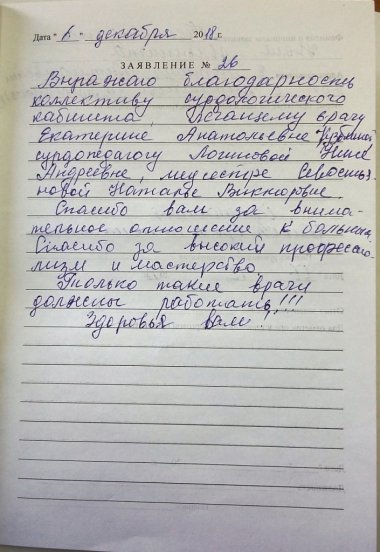 Дата "6" декабря 2018 г.
ЗАЯВЛЕНИЕ № 26
Выражаю благодарность
коллективу сурдологического
кабинета врачу
Екатерине Анатольевне
сурдопедагогу Логиновой Нине
Андреевне медсестре Севостья
новой Наталье Викторовне.
Спасибо вам за внима-
тельное отношение к больным.
Спасибо за высокий професси
лизм и мастерство
Только такие врачи
должны работать!!!
Здоровья вам!